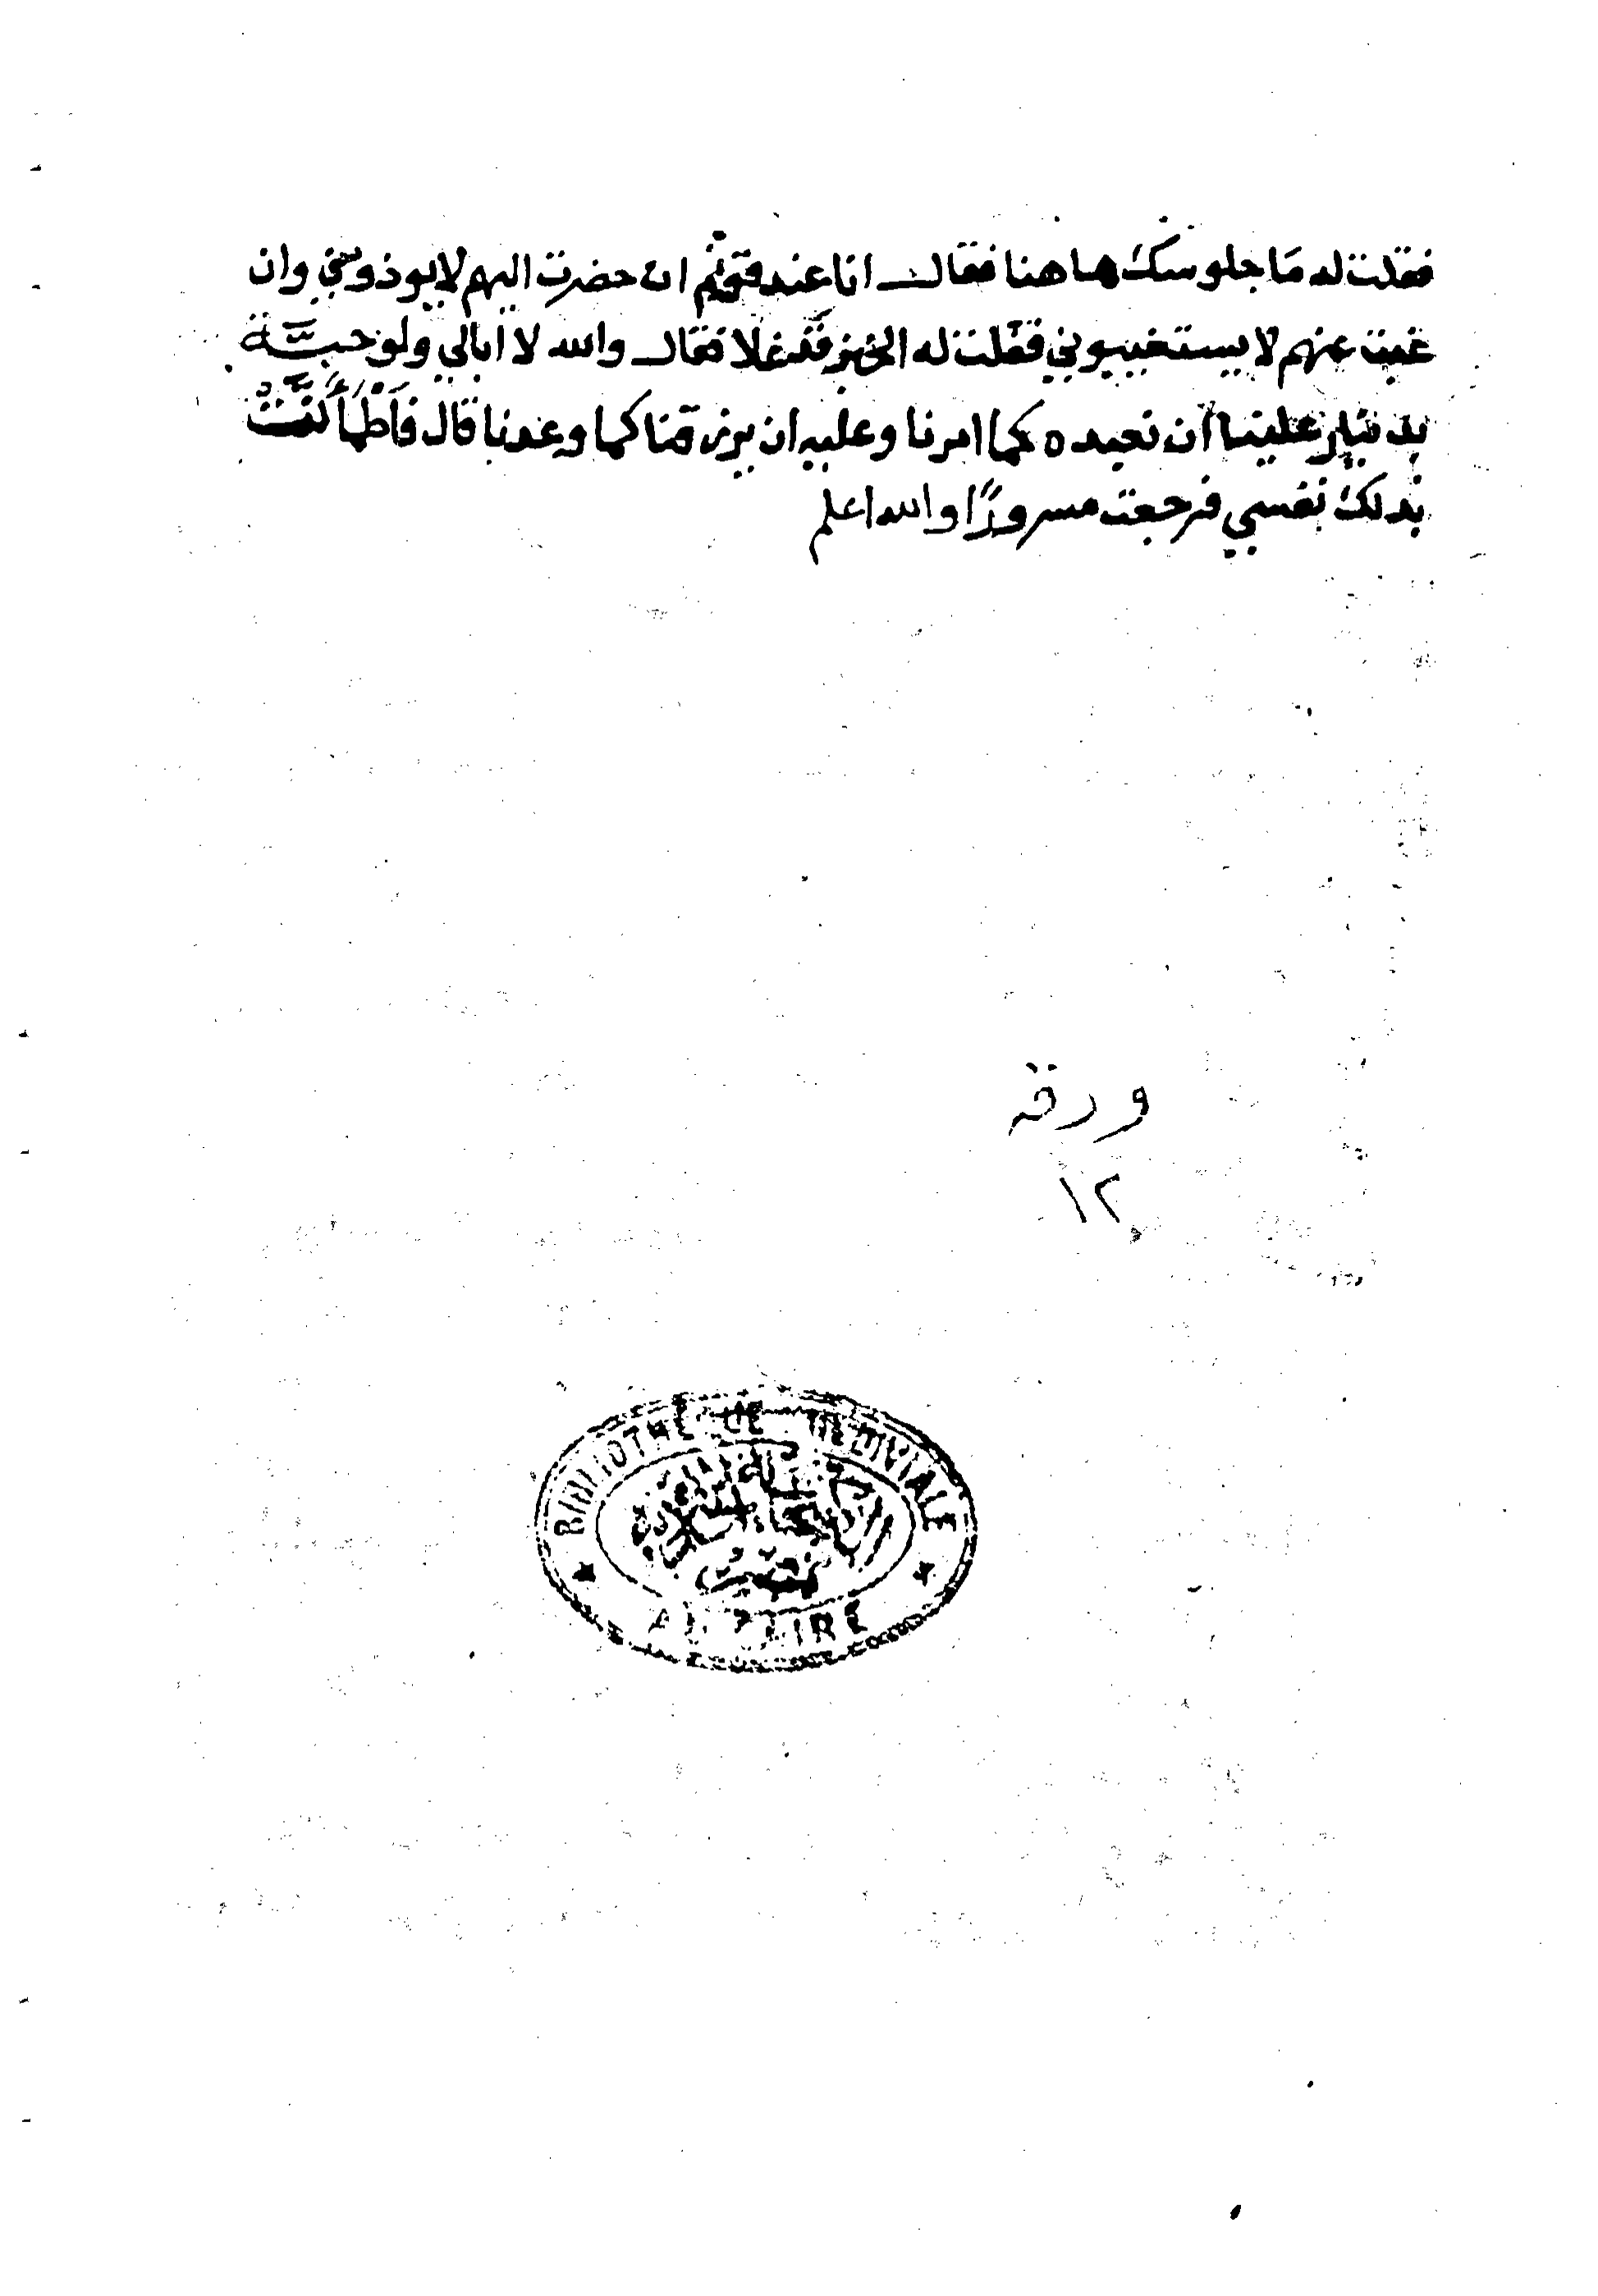 فقلت له مَا جلوسك هاهنا فقال انا عند قوم ان حضرت اليهم لا يوذونني وان
غبت عنهم لا يستغيبوني فقلت له الخبز قد غلا فقال والله لا ابالي ولو حبّة
بدينار علينا ان نعبده كما امرنا وعليه ان يرزقنا كما وعدنا قال فَاَطْمَأَنَّتْ
بذلك نفسي فرجعت مسرورًا والله اعلم
ورقه
١٢
BIBLIOTHEQUE KHEDIVIALE
AU CAIRE